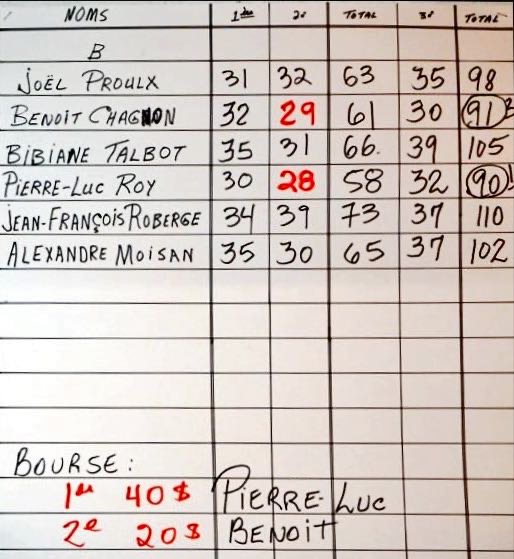 NOMS 1ère 2e TOTAL 3e TOTAL
B
JOËL PROULX 31 32 63 35 98
BENOIT CHAGNON 32 29 61 30 91 2
BIBIANE TALBOT 35 31 66. 39 105
PIERRE-LUC ROY 30 28 58 32 90 1
JEAN-FRANÇOIS ROBERGE 34 39 73 37 110
ALEXANDRE MOISAN 35 30 65 37 102
BOURSE:
1er 40$ PIERRE-LUC
2e 20$ BENOIT